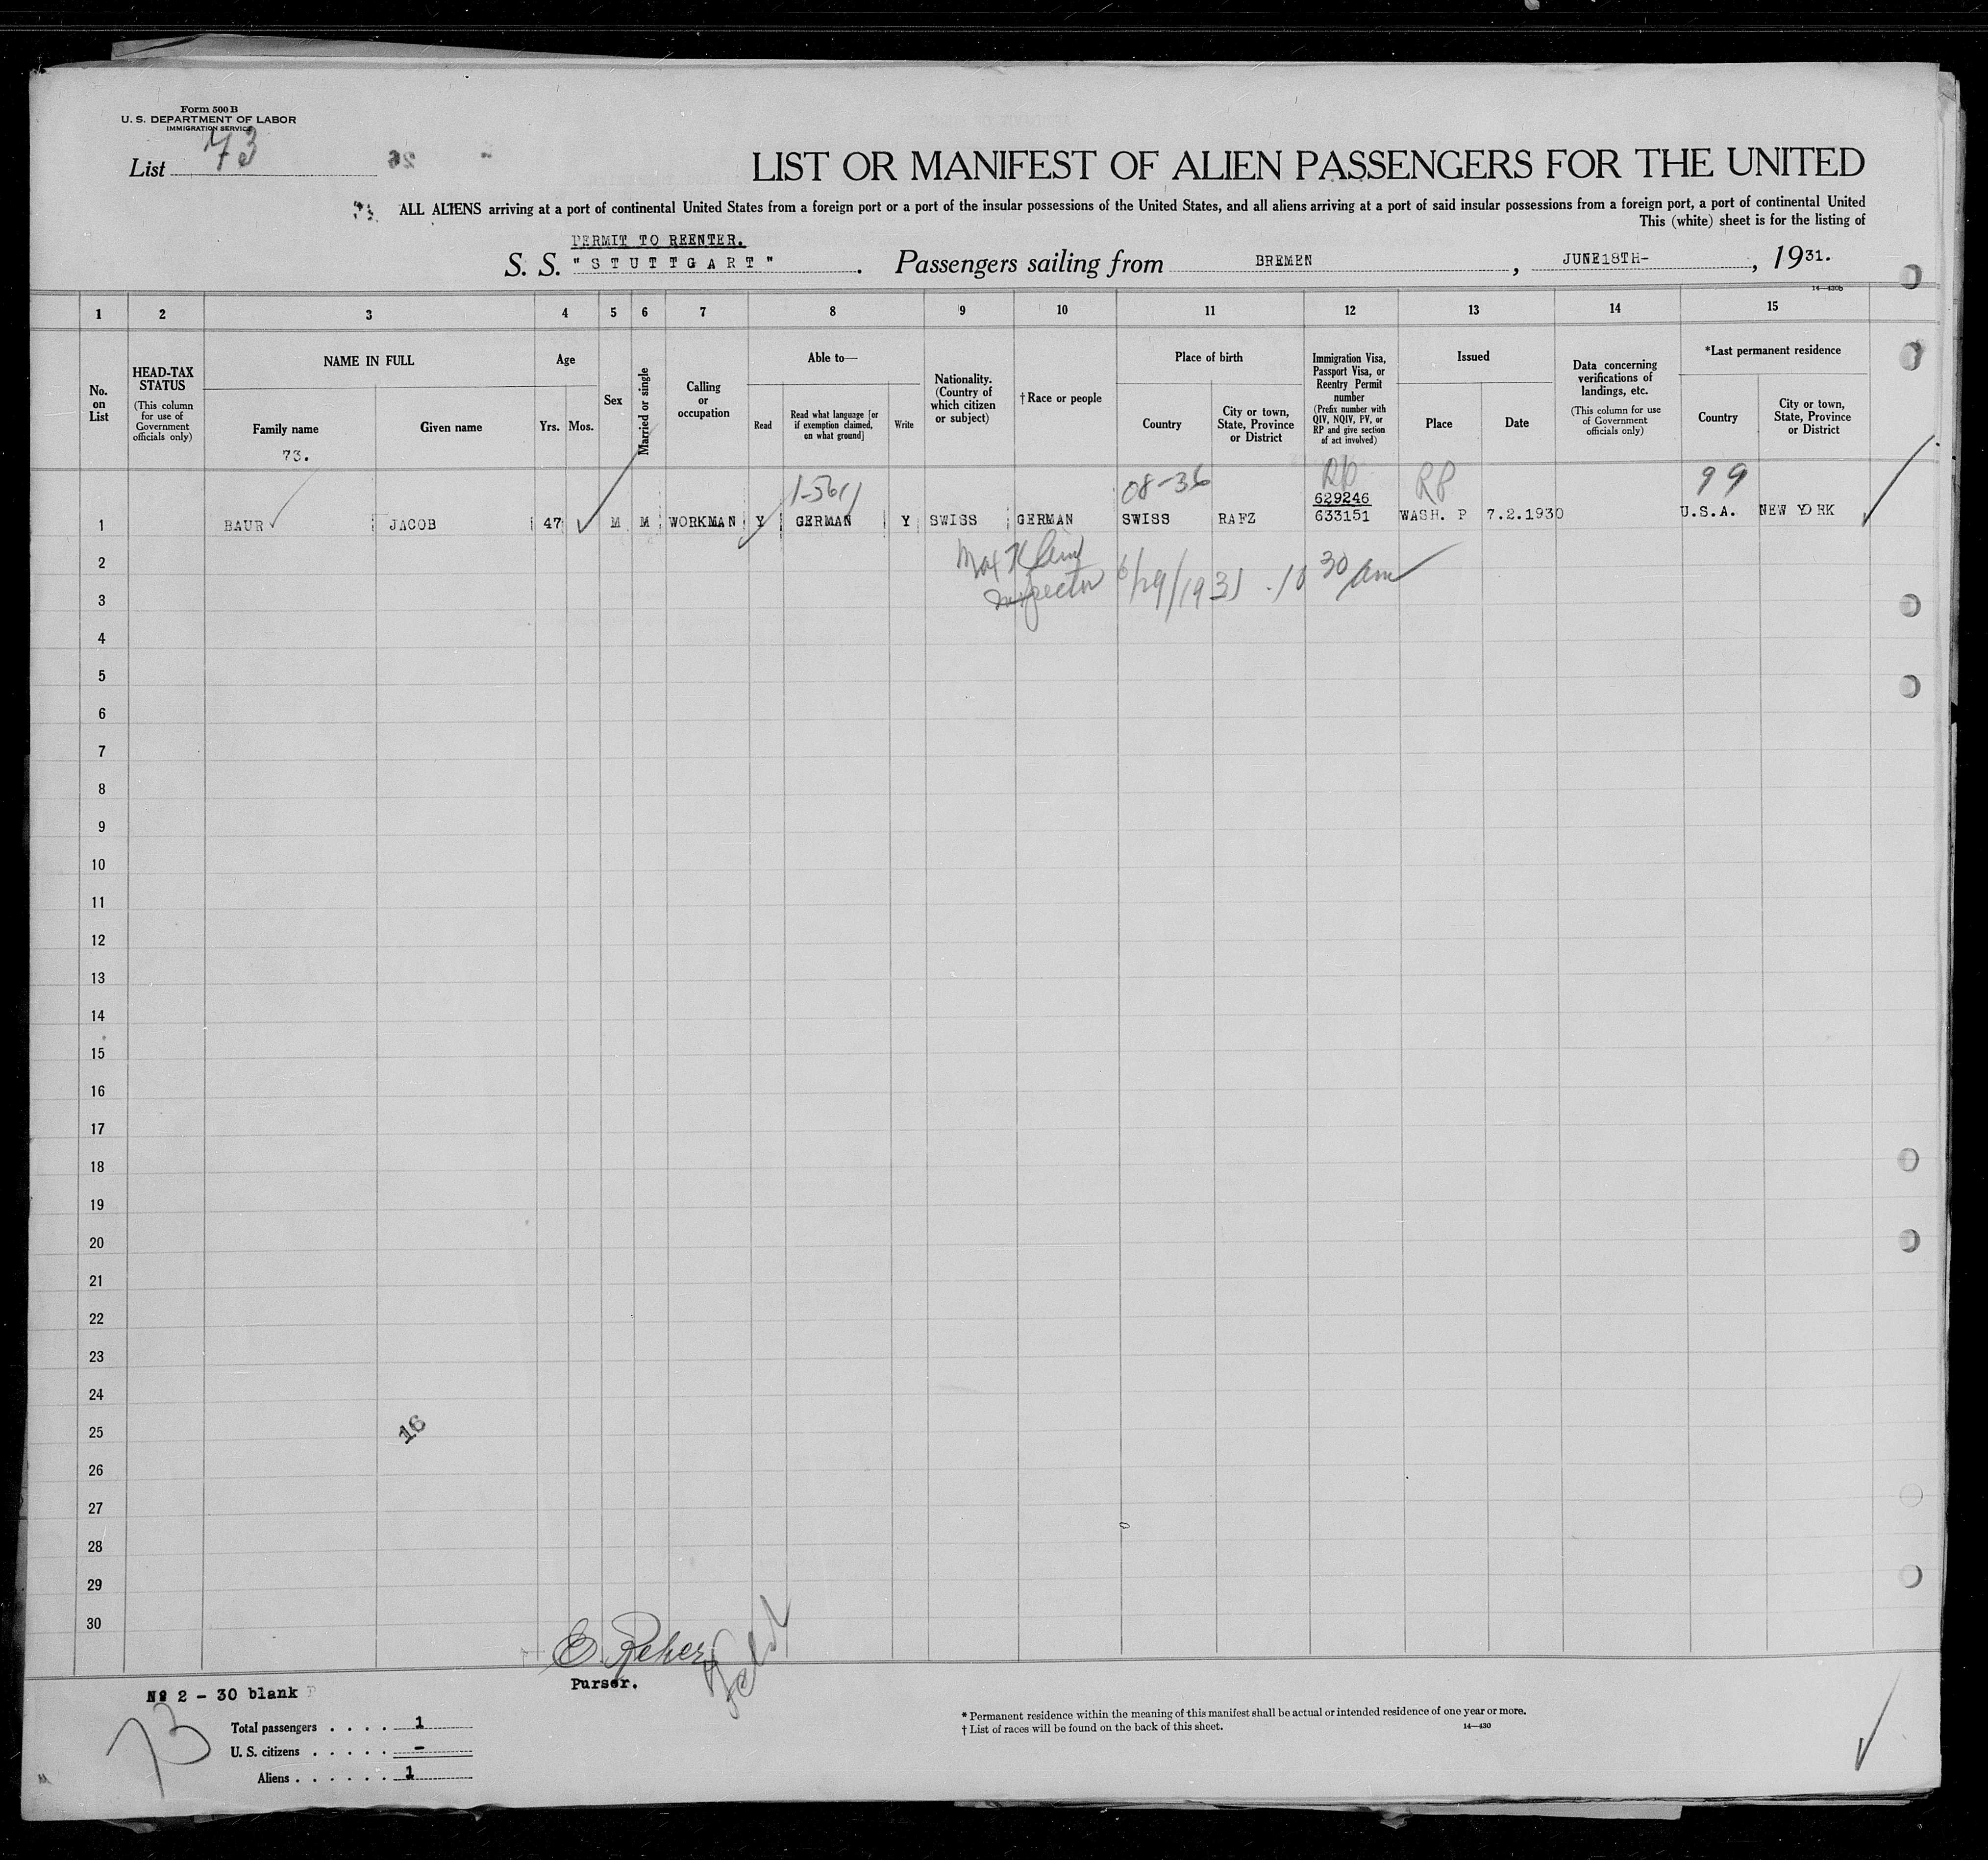 Form 500 B
U. S. DEPARTMENT OF LABOR
IMMIGRATION SERVICE
List 73
26
LIST OR MANIFEST OF ALIEN PASSENGERS FOR THE UNITED
ALL ALIENS arriving at a port of continental United States from a foreign port or a port of the insular possessions of the United States, and all aliens arriving at a port of said insular possessions from a foreign port, a port of continental United
This (white) sheet is for the listing of
PERMIT TO REENTER.
S. S. "STUTTGART". Passengers sailing from BREMEN, JUNE18TH-, 1931.
14—430b
1 2 3 4 5 6 7 8 9 10 11 12 13 14 15
No. on List
HEAD-TAX STATUS (This column for use of Government officials only)
NAME IN FULL
Family name
Given name
73.
Age
Yrs. Mos.
Sex
Married or single
Calling or occupation
Able to—
Read
Read what language [or if exemption claimed, on what ground]
Write
Nationality. (Country of which citizen or subject)
† Race or people
Place of birth
Country
City or town, State, Province or District
Immigration Visa, Passport Visa, or Reentry Permit number (Prefix number with QIV, NQIV, PV, or RP and give section of act involved)
Issued
Place
Date
Data concerning verifications of landings, etc. (This column for use of Government officials only)
*Last permanent residence
Country
City or town, State, Province or District
08-36 RP RP 99
629246
1 BAUR JACOB 47 M M WORKMAN Y GERMAN Y SWISS GERMAN SWISS RAFZ 633151 WASH. P 7.2.1930 U.S.A. NEW YORK
2
Inspector 6/29/1931 10 30 am
3
4
5
6
7
8
9
10
11
12
13
14
15
16
17
18
19
20
21
22
23
24
25
16
26
27
28
29
30
Purser.
No 2 - 30 blank
73
Total passengers . . . . 1
U. S. citizens . . . . . –
Aliens . . . . . . 1
* Permanent residence within the meaning of this manifest shall be actual or intended residence of one year or more.
† List of races will be found on the back of this sheet.
14—430